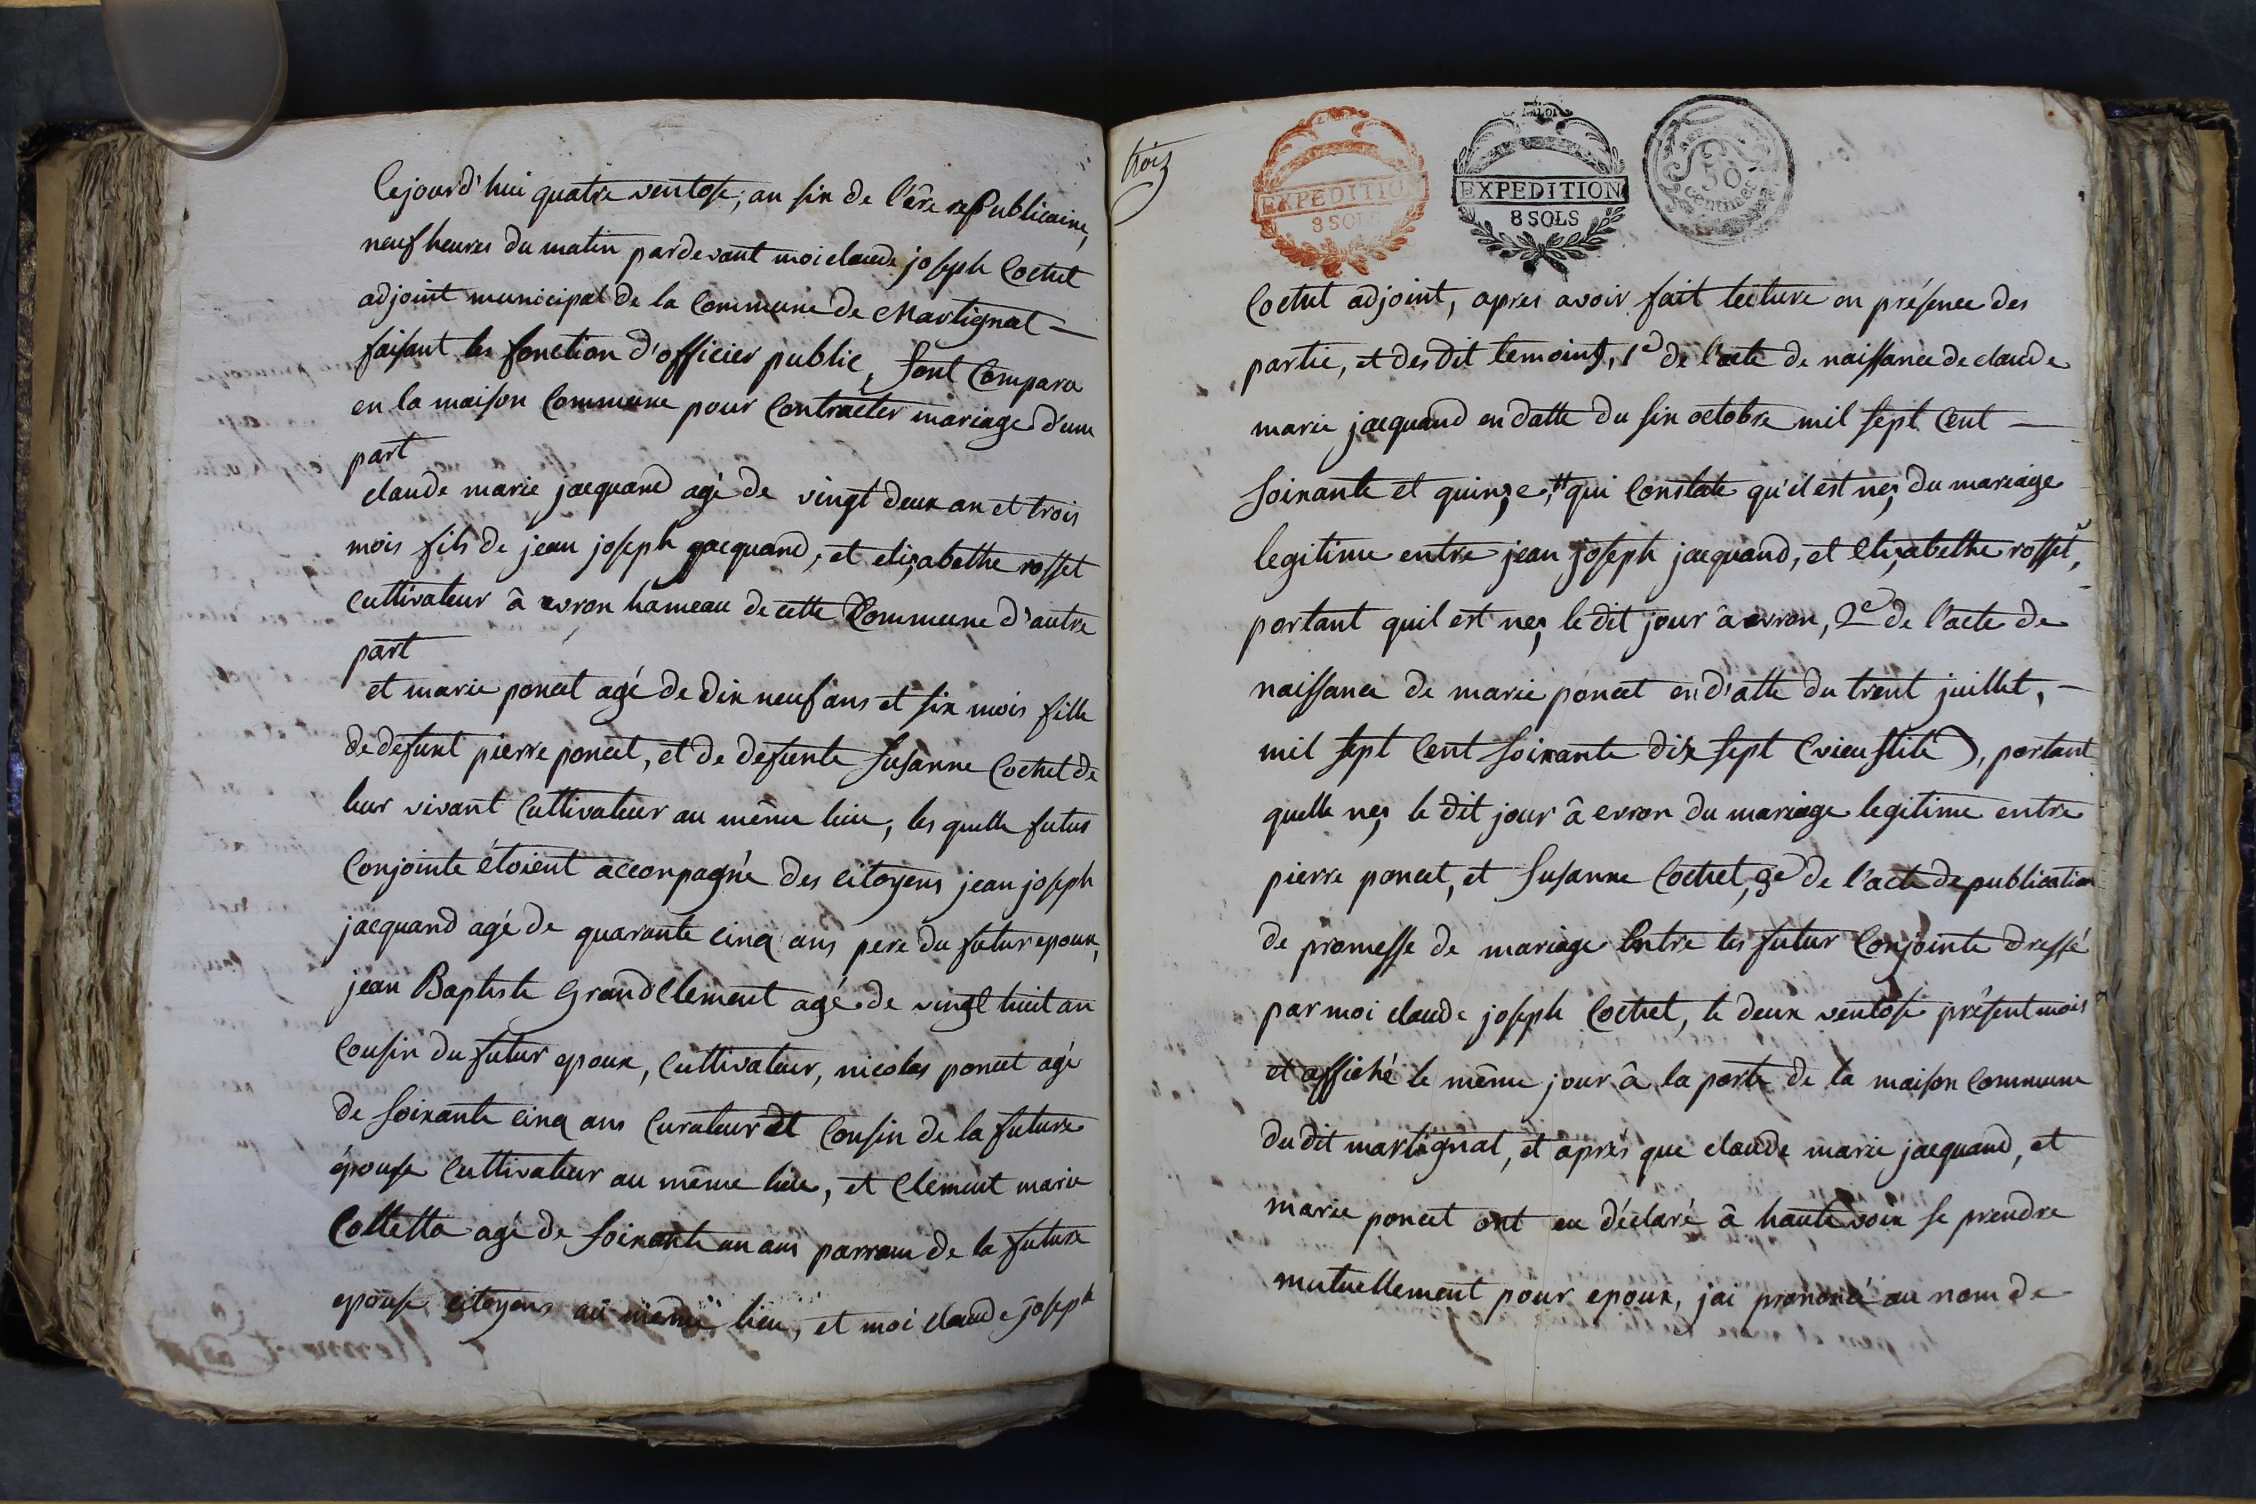 Cejourd'hui quatre ventose, an six de l'êre rePublicaine,
neuf heures du matin pardevant moi claude joseph Cochet
adjoint municipal de la Commune de Martignat —
faisant les fonction d'officier public, sont Comparu
en la maison Commune pour Contracter mariage d'une
part
claude marie jacquand agé de vingt deux an et trois
mois fils de jean joseph jacquand, et elizabethe rosset
Cultivateur â evron hameau de cette Commune d'autre
part
et marie poncet agé de dix neuf ans et six mois fille
de defunt pierre poncet, et de defunte Susanne Cochet de
leur vivant Cultivateur au même lieu, les quelle futus
Conjointe étoient accompagné des citoyens jean joseph
jacquand agé de quarante cinq ans pere du futur epoux,
jean Baptiste GrandClement agé de vingt huit an
Cousin du futur epoux, Cultivateur, nicolas poncet agé
de Soixante cinq ans Curateur et Cousin de la future
épouse Cultivateur au même lieu, et Clement marie
Colletta agé de Soixante un ans parrain de la future
epouse, citoyens au même lieu, et moi claude joseph
trois
EXPEDITION
8 SOLS
LA LOI
EXPEDITION
8 SOLS
50
Centimes
Cochet adjoint, apres avoir fait lecture en présence des
partie, et des dit temoins, 1e de l'acte de naissance de claude
marie jacquand en datte du six octobre mil sept Cent —
Soixante et quinze, qui Constate qu'il est nez du mariage
legitime entre jean joseph jacquand, et Elizabethe rosset,
portant quil est nez le dit jour â evron, 2e de l'acte de
naissance de marie poncet en d'atte du trent juillet, —
mil sept Cent Soixante dix sept (vieu stile), portant
quelle nez le dit jour â evron du mariage legitime entre
pierre poncet, et Susanne Cochet, 3e de l'acte de publication
de promesse de mariage Entre les futur Conjointe dressé
par moi claude joseph Cochet, le deux ventose présent mois
et affiché le même jour â la porte de la maison Commune
du dit martignat, et aprés que claude marie jacquand, et
marie poncet ont eu déclaré â haute voix se prendre
mutuellement pour epoux, jai prononcé au nom de